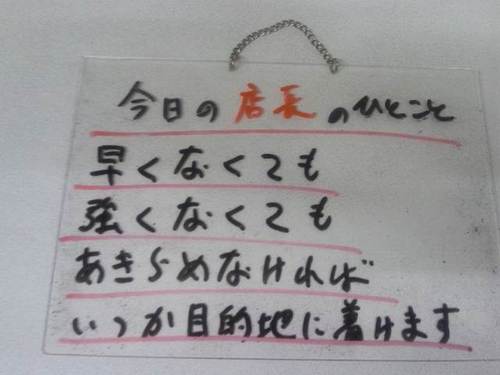 今日の店長のひとこと
早くなくても
強くなくても
あきらめなければ
いつか目的地に着けます